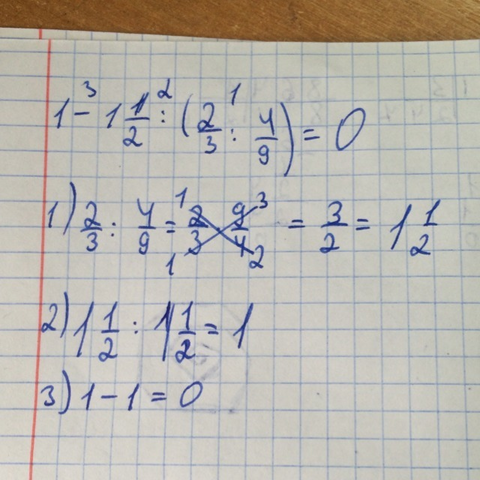 1 -³ 1 1/2 :² (2/3 :¹ 4/9) = 0
1) 2/3 : 4/9 = ¹2/3₁ · ³9/4₂ = 3/2 = 1 1/2
2) 1 1/2 : 1 1/2 = 1
3) 1 - 1 = 0